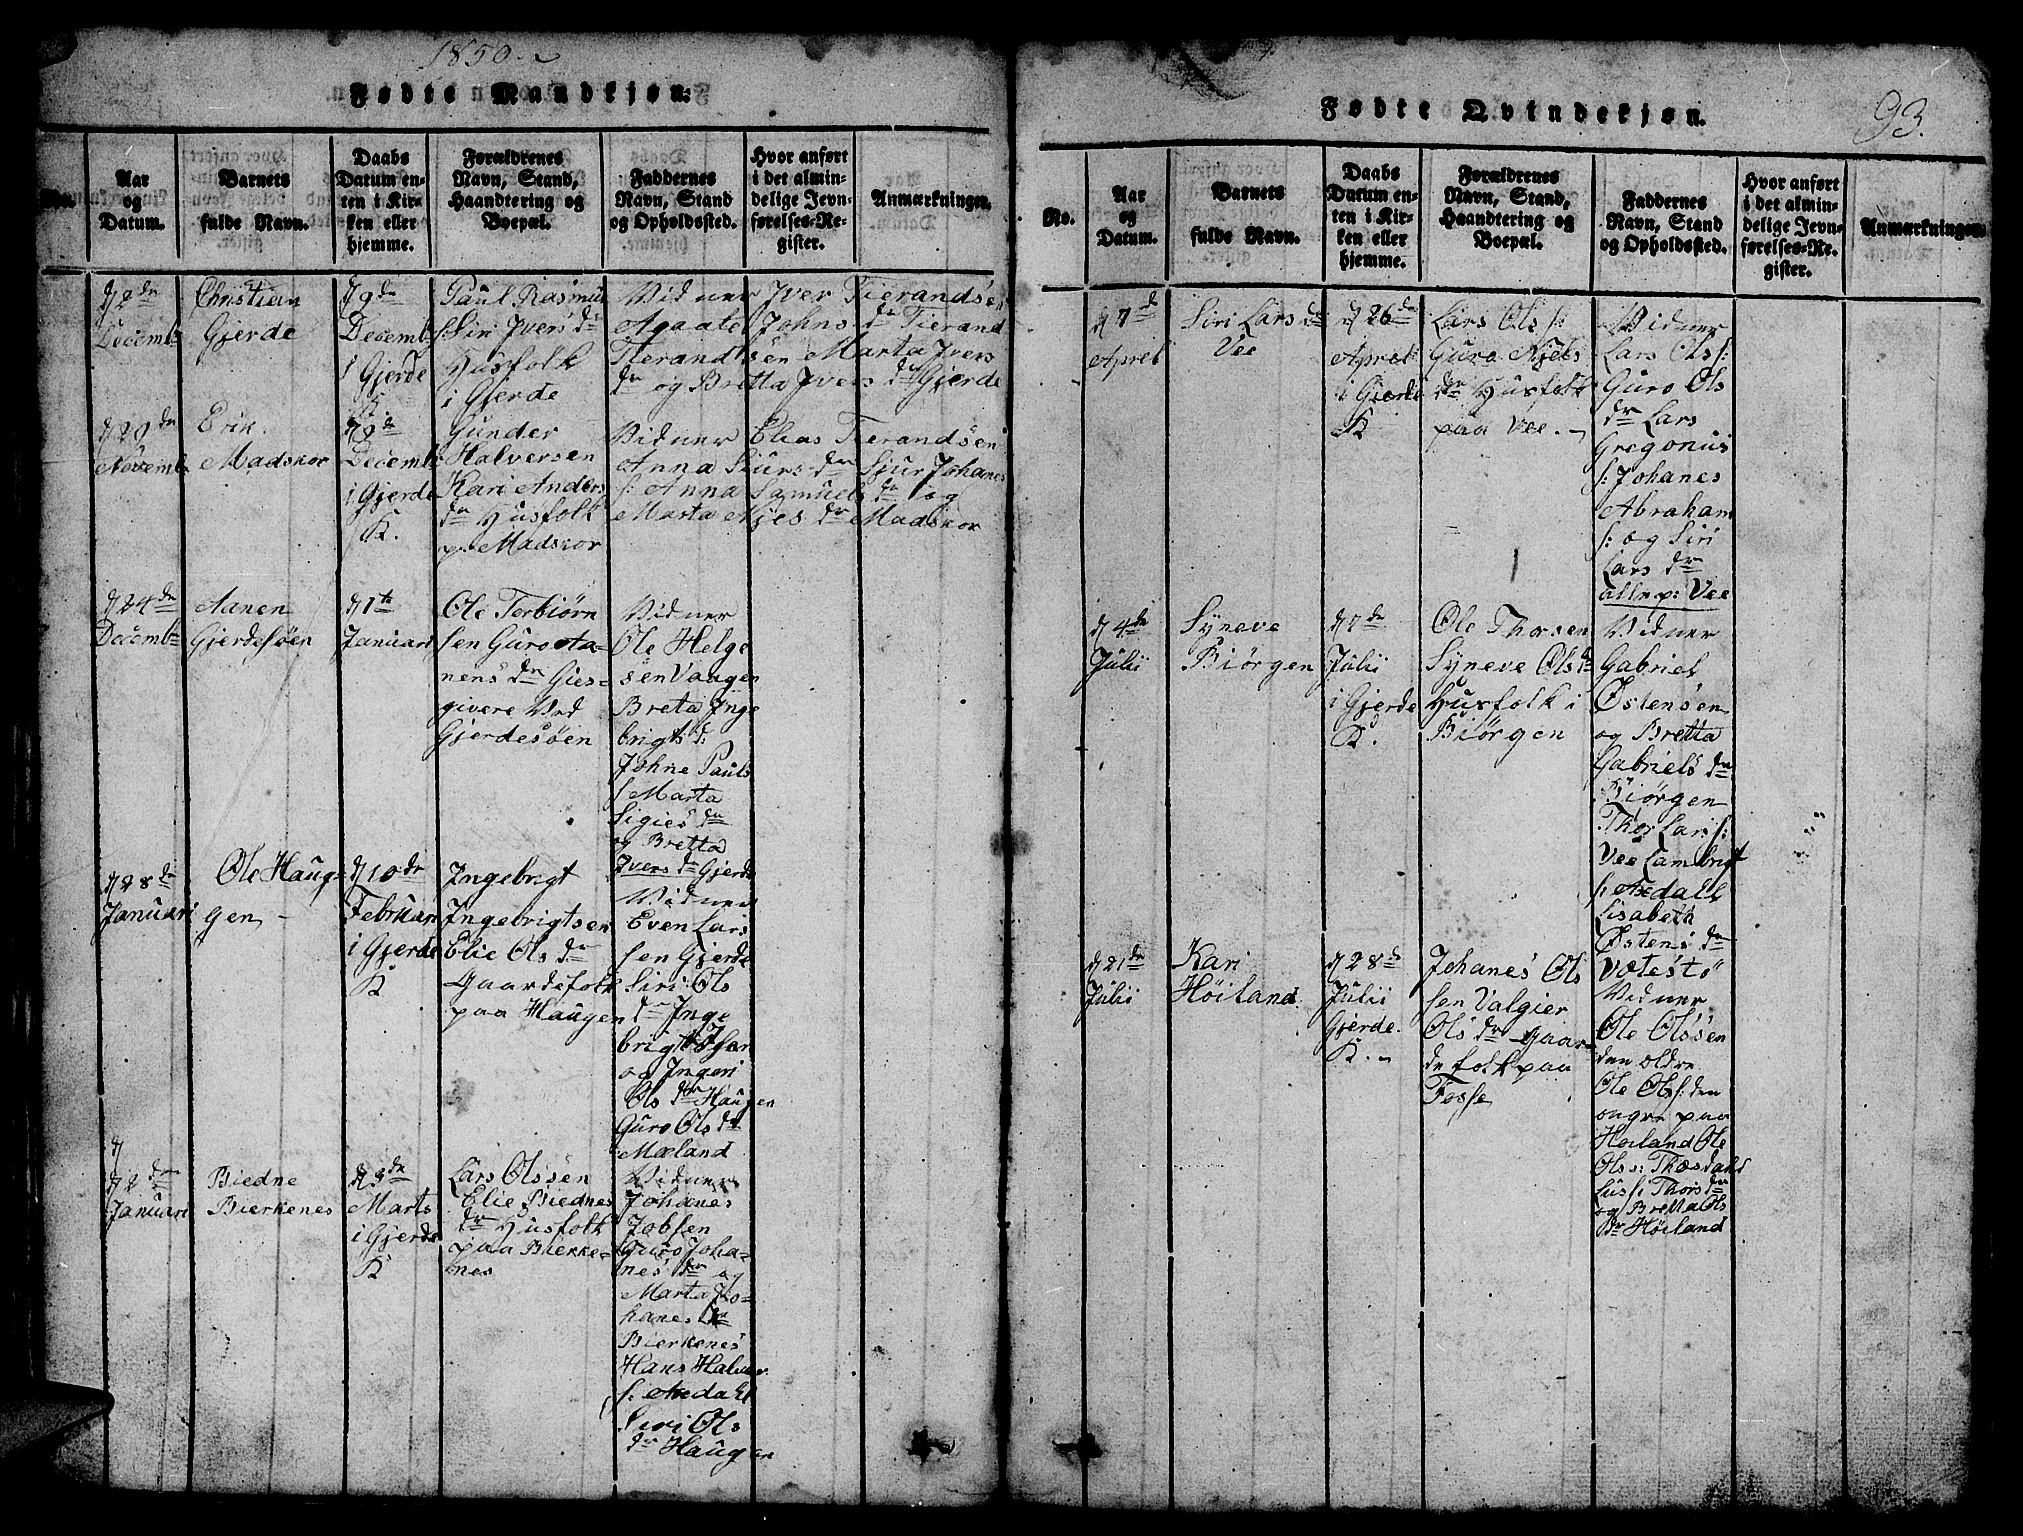 1850.
Fødte Mandkjøn:
No.
Aar
og
Datum.
Barnets
fulde Navn.
Daabs
Datum en-
ten i Kir-
ken eller
hjemme.
Forældrenes
Navn, Stand,
Haandtering og
Boepæl.
Faddernes
Navn, Stand
og Opholdssted.
Hvor anført
i det almin-
delige Jevn-
førelses-Re-
gister.
Anmærkninger.
d 2dn
Decembr
Christian
Gjerde
d 9dn
Decemb
i Gjerde
K
Paul Rasmus
s. Siri Jvers dr
Husfolk
i Gjerde
Vidner Jver Tierandsen
Agaate Johns dr Tierand
Tierandsen Marta Jvers
dr og Bretta Jvers dr Gjerde
d 29dn
Novemb
Erik
Madskor
d 9dn
Decemb
i Gjerde
K.
Gunder
Halversen
Kari Anders
dr Husfolk
p. Madskor
Vidner Elias Tierandsen
Anna Siurs dr Sjur Johanes
s: Anna Samuels dr og
Marta Njes dr Madskor
d 24dn
Decembr
Aanen
Gjerdesøen
d 1te
Januari
Ole Torbiørn
sen Guro Aa-
nens dr Gies-
givere Ved
Gjerdesøen
Vidner
Ole Helge
sen Vaagen
Breta Jnge
brigts d:
Johne Pauls
s Marta
Sigies dr
og Bretta
Jvers dr Gjerde
d 28dn
Januari
Ole Haug-
gen
d 10dn
Februari
i Gjerde
K
Jngebrigt
Jngebrigtsen
Elie Ols dr
Gaardefolk
paa Haugen
Vidner
Even Lars
sen Gjerde
Siri Ols
dr Jnge
brigt
og Jngeri
Ols dr Haugen
Guro Ols dr
Mæland
d
d 2dn
Januari
Biedne
Bierkenes
d 3dn
Marts
i Gjerde
K
Lars Olssen
Elie Biednes
dr Husfolk
paa Bierke-
nes
Vidner
Johanes
Jobsen
Guro Joha-
nes dr og
Marta Jo-
hanes dr
Bierkenes
Hans Halver
s: Axedahl
Siri Ols
dr Haugen
Fødte Qvindekjøn.
93.
No.
Aar
og
Datum.
Barnets
fulde Navn.
Daabs
Datum en-
ten i Kir-
ken eller
hjemme.
Forældrenes
Navn, Stand,
Haandtering og
Boepæl.
Faddernes
Navn, Stand
og Opholdssted.
Hvor anført
i det almin-
delige Jevn-
førelses-Re-
gister.
Anmærkninger.
d 7d
Aprel
Siri Lars dr
Vee
d 26dn
Aprel
i Gjerde
K
Lars Ols s:
Guro Njels
dr Husfolk
paa Vee.
Vidner
Lars Ols s:
Guro Ols
dr Lars
Gregorius
s: Johanes
Abraham
s: og Siri
Lars dr
alle p: Vee
d 4de
Julii
Syneve
Biørgen
d 7de
Julii
i Gjerde
K.
Ole Thorsen
Syneve Ols dr
Husfolk i
Biørgen
Vidner
Gabriel
Østensen
og Bretta
Gabriels dr
Biørgen
Thor Lars s:
Vee Lambrigt
s: Axdall
Lisabeth
Østens dr
Vætestø
d 21dn
Julii
Kari
Høiland
d 28d
Julii
Gjerde
K.
Johanes Ols
sen Valgier
Ols dr Gaar-
de folk paa
Fosse
Vidner
Ole Olssen
den ældre
Ole Ols s: den
ongre paa
Høiland Ole
Ols s: Thæsdahl
Lussi Thors dr
og Bretta Ols
dr Høiland